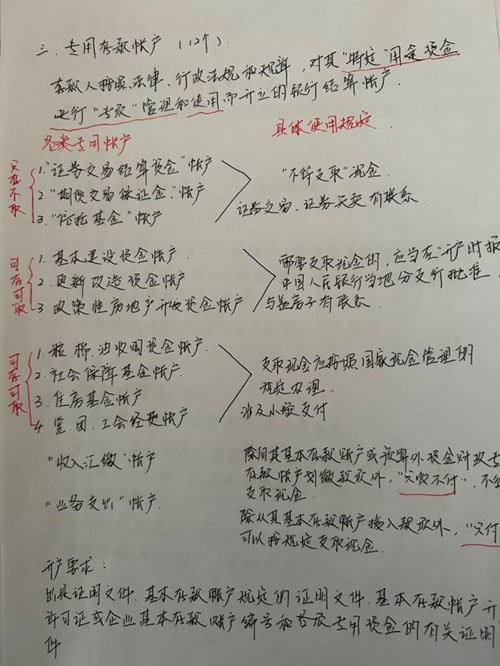 三、专用存款帐户（12个）.
存款人按照法律、行政法规和规章，对其"特定"用途资金
进行"专项"管理和使用而开立的银行结算帐户.
各类专用帐户
具体使用规定.
只存不取
1."证券交易结算资金"帐户
2."期货交易保证金"帐户
3."信托基金"帐户
"不得支取"现金.
证券交易、证券买卖有联系
可存可取
1.基本建设资金帐户
2.更新改造资金帐户
3 政策性房地产开发资金帐户
需要支取现金的，应当在"开户时报
中国人民银行当地分支行批准.
与盖房子有联系
可存可取
1.粮、棉、油收购资金帐户.
2.社会保障基金帐户.
3.住房基金帐户
4.党、团、工会经费帐户
支取现金应按照国家现金管理的
规定办理.
涉及小额支付
"收入汇缴"帐户
除向其基本存款账户或预算外资金财政专
存款帐户划缴款项外，"只收不付".不
支取现金.
"业务支出"帐户.
除从其基本存款账户拨入款项外，"只付
可以按规定支取现金.
开户要求：
出具证明文件.基本存款帐户规定的证明文件.基本存款帐户开
许可证或企业基本存款账户编号和各项专用资金的有关证明
件